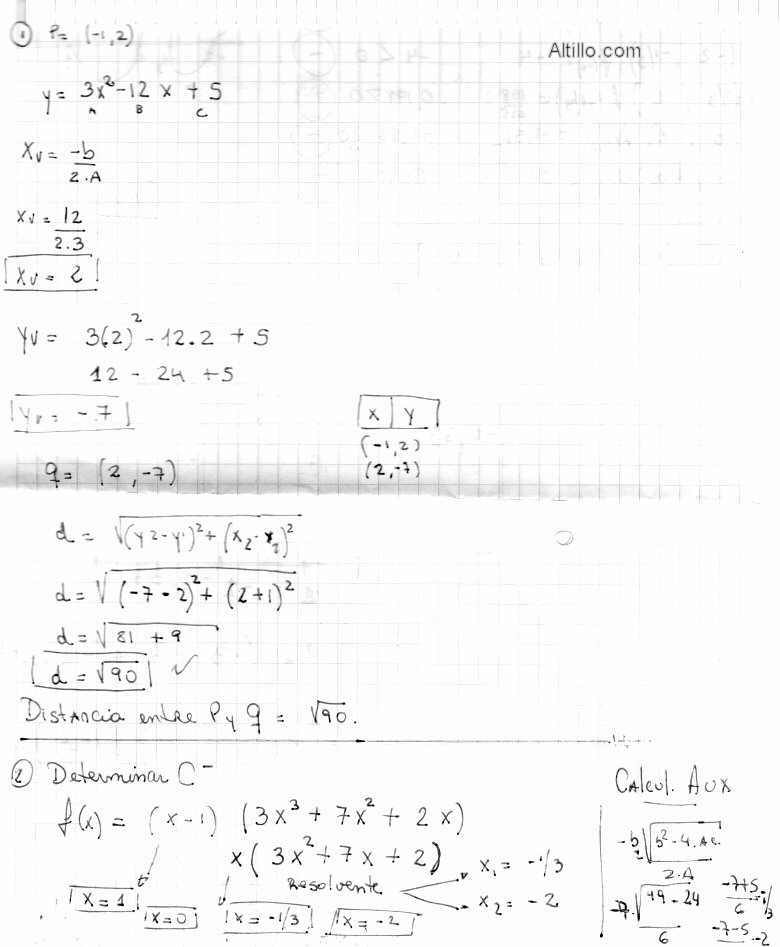 ① P = (-1,2)
Altillo.com
y = 3x² - 12 x + 5
A B C
Xv = -b
2.A
Xv = 12
2.3
Xv = 2
Yv = 3(2)² - 12.2 + 5
12 - 24 + 5
Yv = -7
X Y
(-1,2)
(2,-7)
q = (2,-7)
d = √(y2-y1)² + (x2-x1)²
d = √(-7-2)² + (2+1)²
d = √81 + 9
d = √90 ✓
Distancia entre P y q = √90.
② Determinar C⁻
Calcul. Aux
f(x) = (x-1) (3x³ + 7x² + 2x)
x(3x² + 7x + 2)
Resolvente
x1 = -1/3
x2 = -2
X = 1
X = 0
X = -1/3
X = -2
-b √b² - 4.A.C.
2.A
-7 √49 - 24
6
-7+5
6
-1/3
-7-5
-2